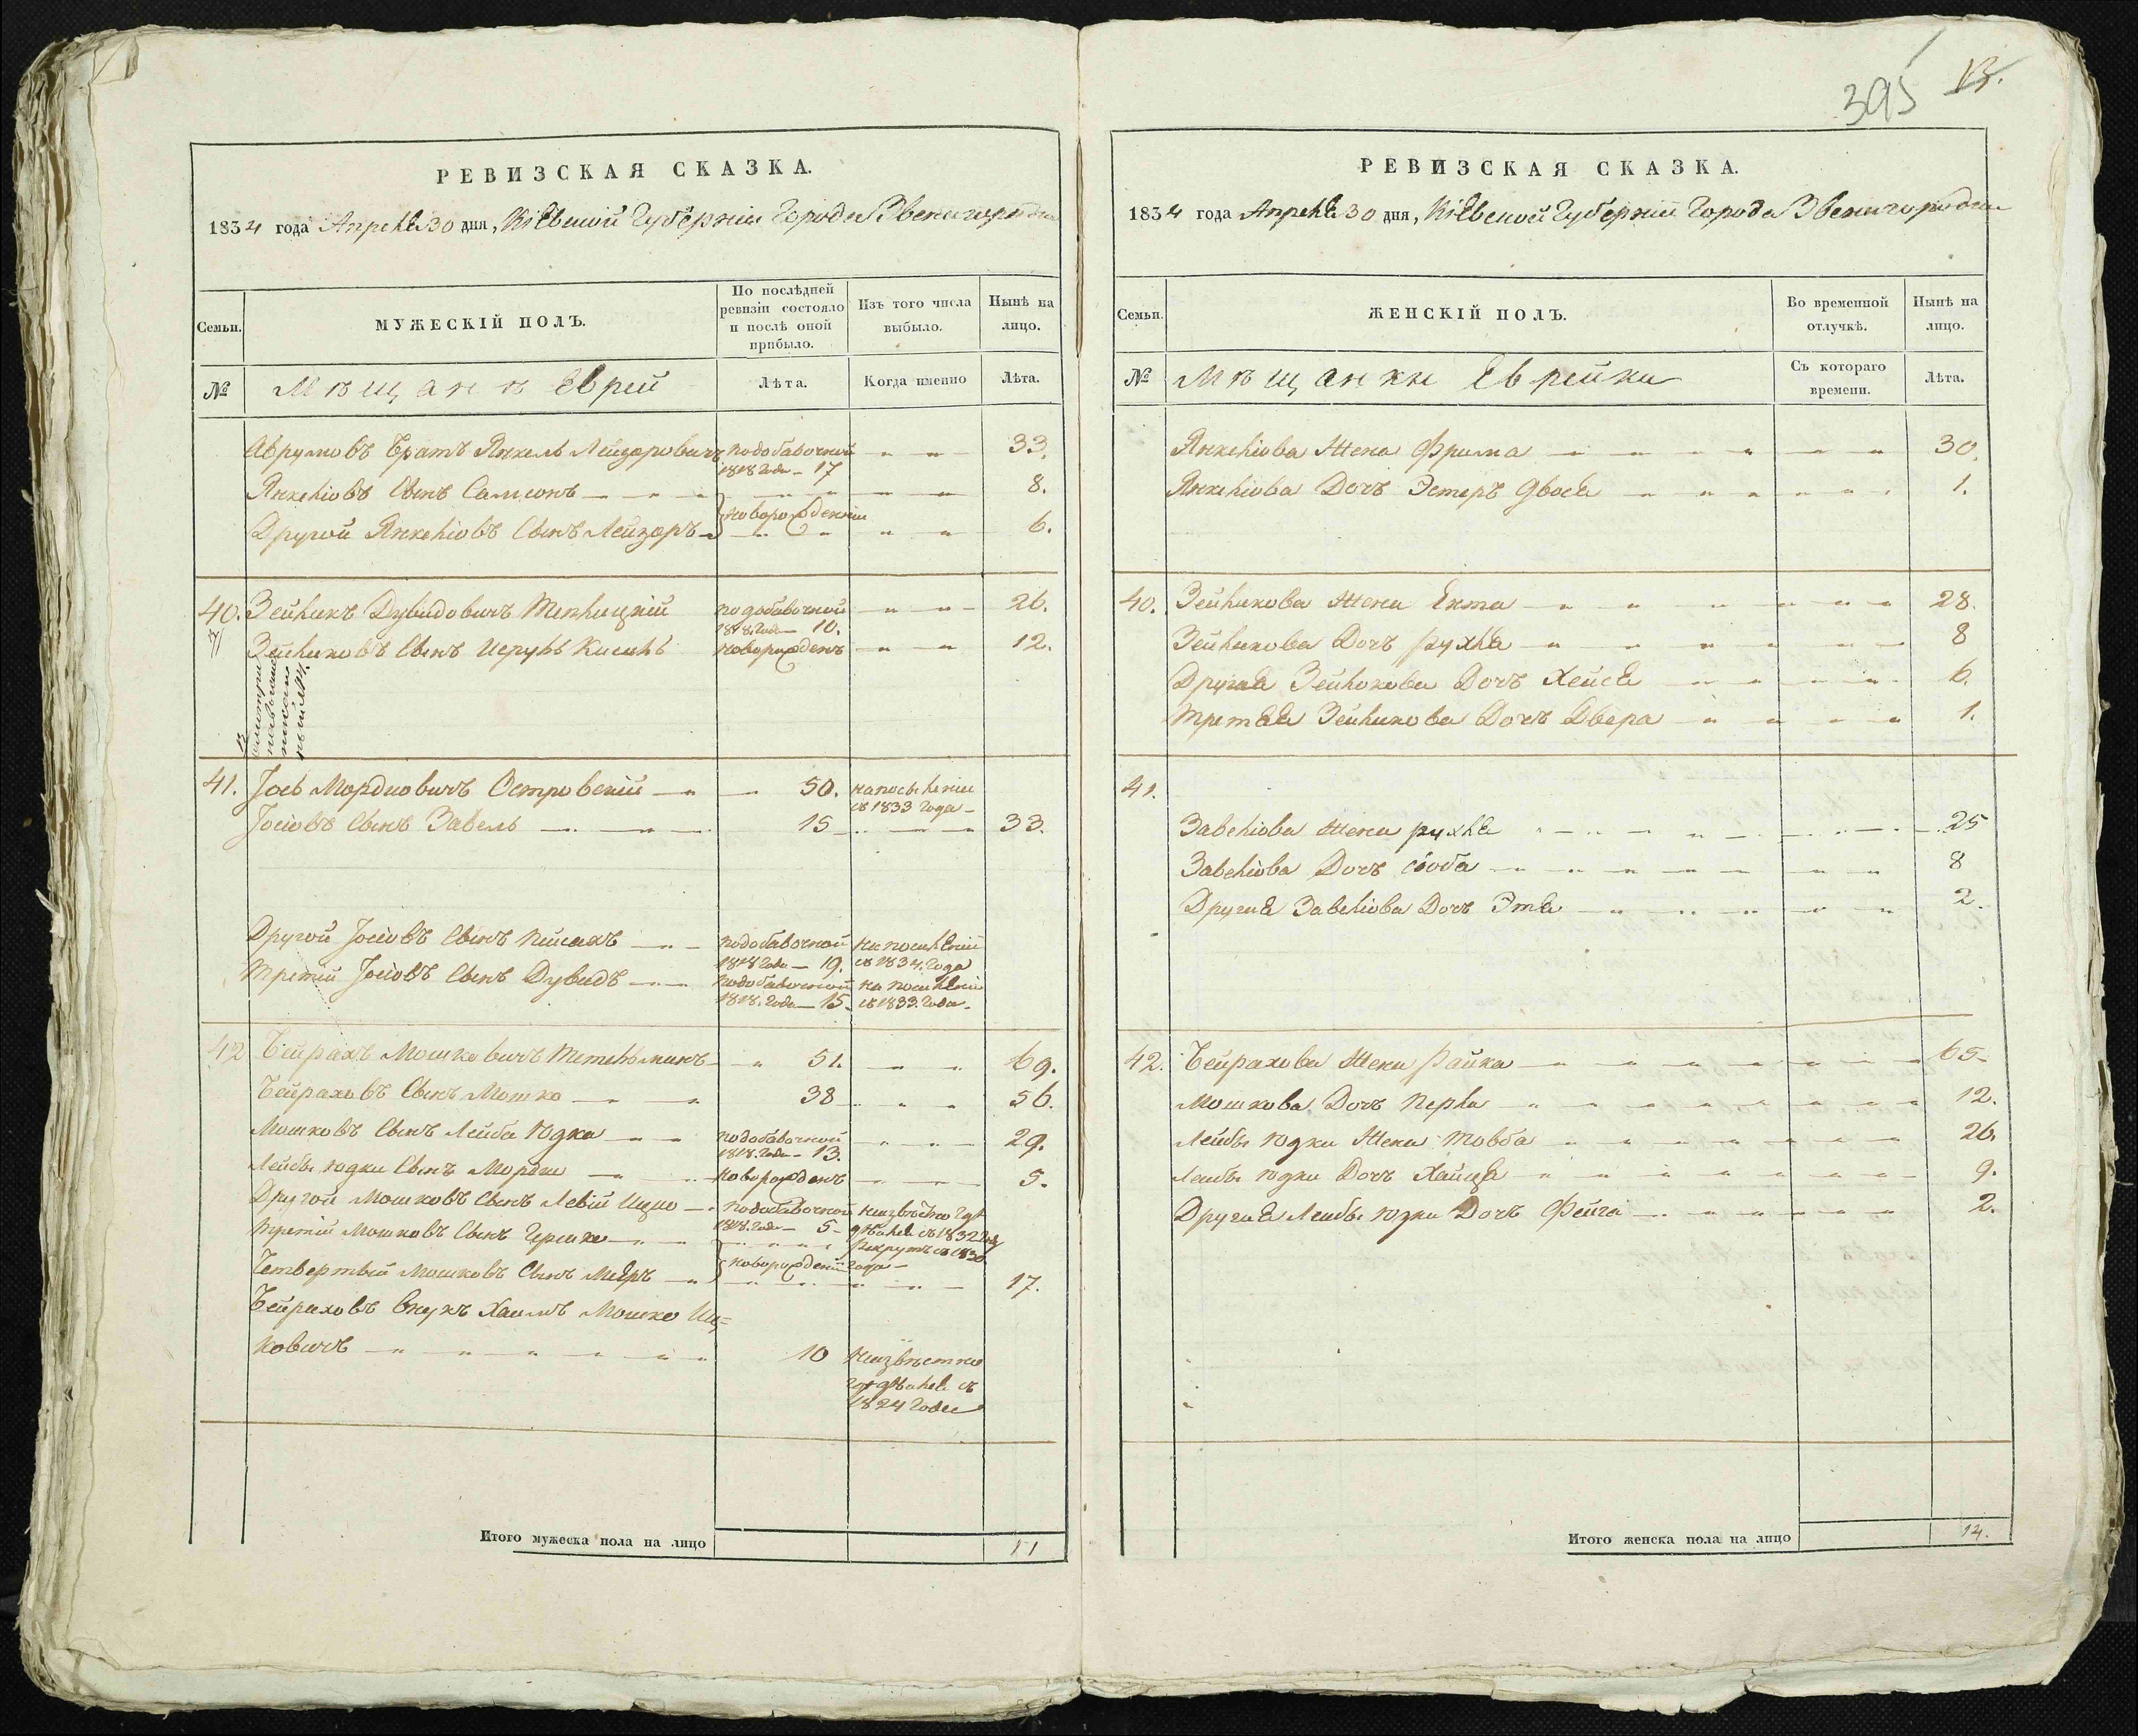 395 13.
РЕВИЗСКАЯ СКАЗКА.
1834 года Апреля 30 дня, Кіевской Губерніи Города Звенигородки
Семьи.
МУЖЕСКІЙ ПОЛЪ.
По послѣдней ревизіи состояло и послѣ оной прибыло.
Изъ того числа выбыло.
Нынѣ на лицо.
№
Мѣщанъ Еврей
Лѣта.
Когда именно
Лѣта.
Аврумовъ Братъ Янкель Лейзоровичъ подобавочной 1818 года – 17 33.
Янкеліовъ Сынъ Самсонъ 8.
новорожденніи
Другой Янкеліовъ Сынъ Лейзоръ 6.
40. Зейликъ Дувидовичъ Теплицкій подобавочной 1818. Года – 10. 26.
Зейликовъ Сынъ Исруль Кисиль новорожденъ 12.
41. Іось Мордковичъ Островскій 50. на посѣленіи съ 1833 года
Іосіовъ Сынъ Завель 15 33.
Другой Іосіовъ Сынъ Пейсахъ подобавочной 1818 года – 19. на посиленіи съ 1834. года
Третій Іосіовъ Сынъ Дувидъ подобавочной 1818. года – 15. на посиленіи съ 1833. года.
42 Бейрахъ Мошковичъ Тетельманъ 51. 69.
Бейраховъ Сынъ Мошко 38 56.
Мошковъ Сынъ Лейба Юдка подобавочной 1818. года – 13. 29.
Лейбы юдки Сынъ Мордко новорожденъ 5.
Другой Мошковъ Сынъ Левій Ицко подобавочной 1818. года – 5 неизвѣстно гдѣ дѣвался съ 1832 году
Третій Мошковъ Сынъ Гершко рекрутъ съ 1830 года
новорожденіи
Четвертый Мошковъ Сынъ Мееръ 17.
Бейраховъ Внукъ Хаимъ Мошко Иц=
ковичъ 10 неизвѣстно
гдѣ дѣвался съ
1824 года
Итого мужеска пола на лицо 11
РЕВИЗСКАЯ СКАЗКА.
1834 года Апреля 30 дня, Кіевской Губерніи Города Звенигородки
Семьи.
ЖЕНСКІЙ ПОЛЪ.
Во временной отлучкѣ.
Нынѣ на лицо.
№
Мѣщанки Еврейки
Съ котораго времени.
Лѣта.
Янкеліова Жена Фрима 30.
Янкеліова Дочъ Эстеръ Двося 1.
40. Зейликова Жена Ента 28.
Зейликова Дочъ Рухля 8
Другая Зейликова Дочъ Хейся 6.
Третяя Зейликова Дочъ Двера 1.
41.
Завеліова Жена рухля 25
Завеліова Дочъ Сіоба 8
Другая Завеліова Дочъ Этя 2.
42. Бейрахова Жена Райка 65
Мошкова Дочъ Перла 12.
Лейбы юдки Жена Товба 26.
Лейбы юдки Дочъ Хайця 9.
Другая Лейбы юдки Дочъ Фейга 2.
Итого женска пола на лицо 14.